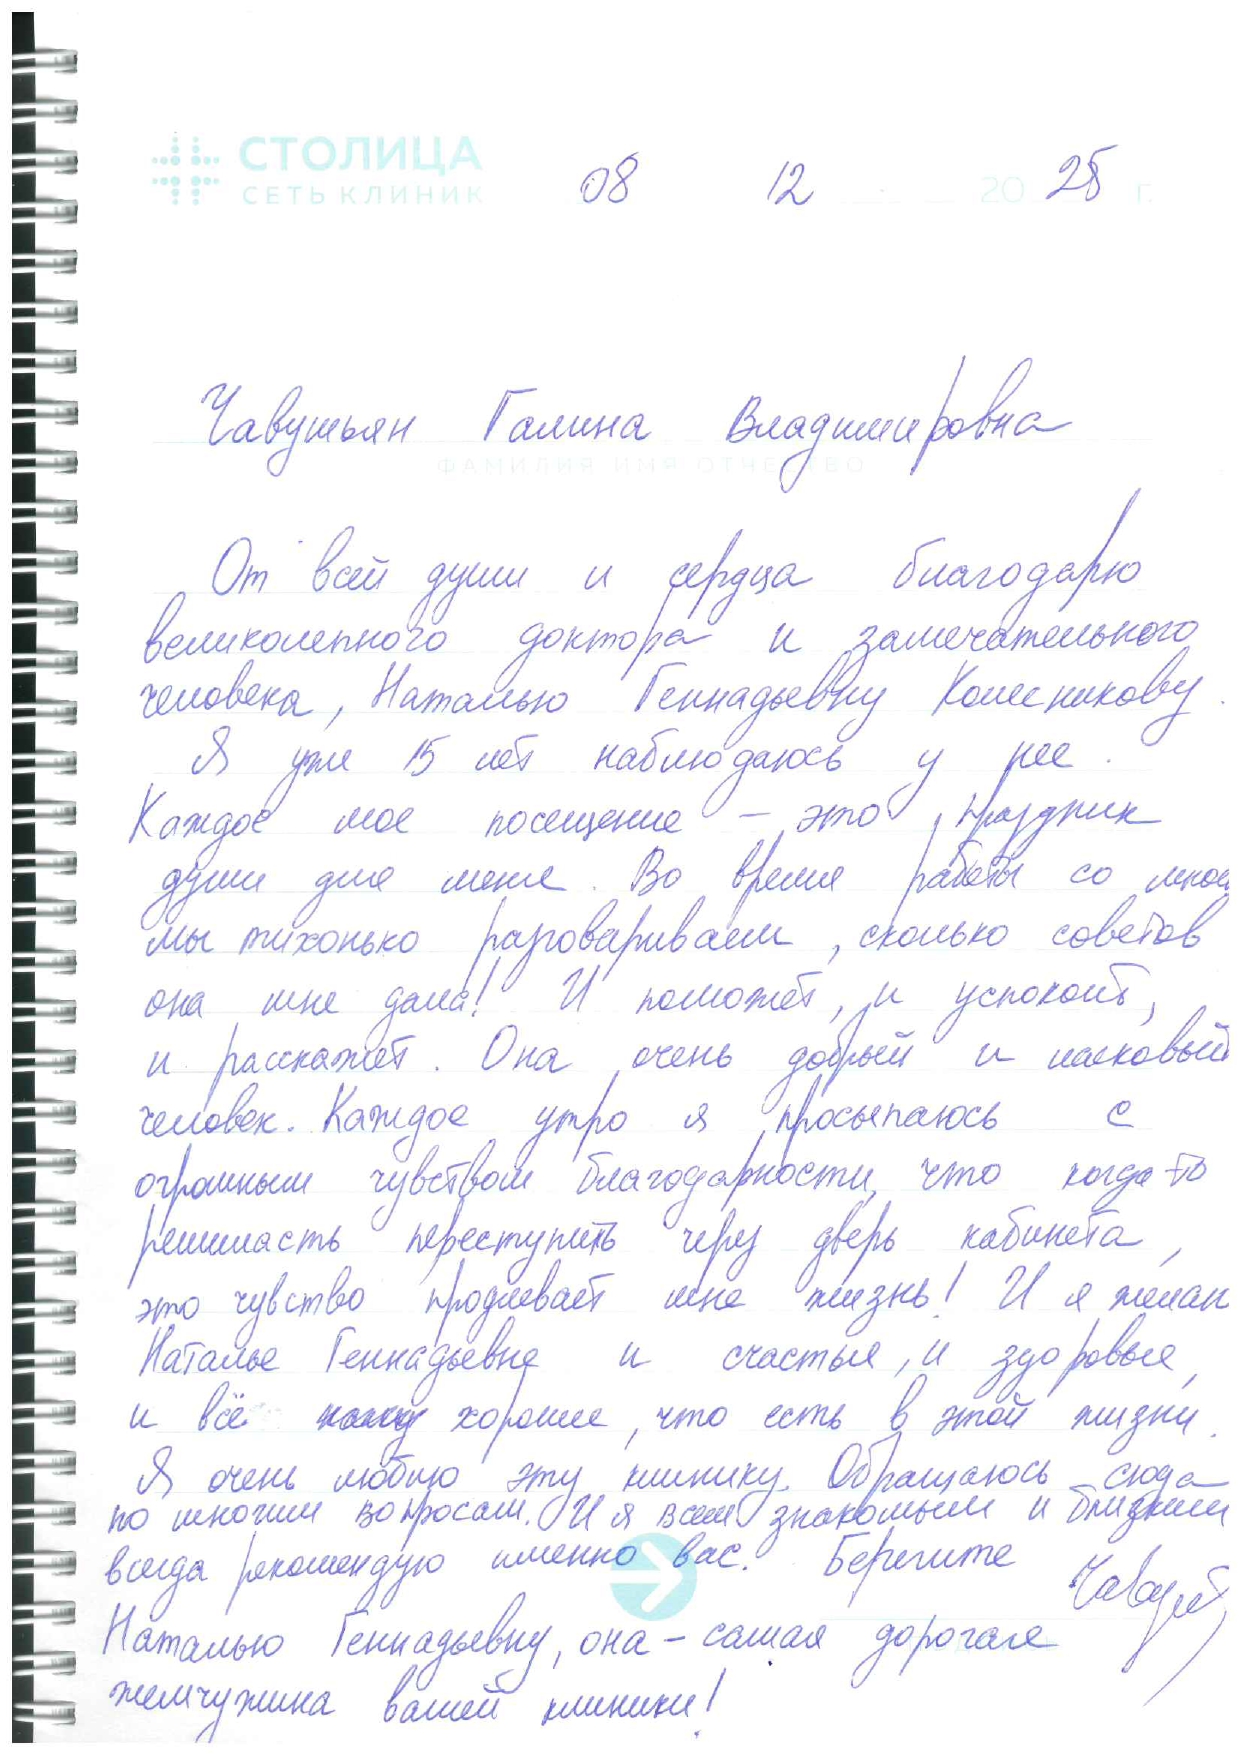 СТОЛИЦА
СЕТЬ КЛИНИК
08 12 2025 г.
Чавушьян Галина Владимировна
ФАМИЛИЯ ИМЯ ОТЧЕСТВО
От всей души и сердца благодарю
великолепного доктора и замечательного
человека, Наталью Геннадьевну Колесникову.
Я уже 15 лет наблюдаюсь у нее.
Каждое мое посещение – это праздник
души для меня. Во время работы со мной
мы тихонько разговариваем, сколько советов
она мне дала! И поможет, и успокоит,
и расскажет. Она очень добрый и ласковый
человек. Каждое утро я просыпаюсь с
огромным чувством благодарности, что когда-то
решилась переступить через дверь кабинета,
это чувство продлевает мне жизнь! И я желаю
Наталье Геннадьевне и счастья, и здоровья,
и всё хорошее, что есть в этой жизни.
Я очень люблю эту клинику. Обращаюсь сюда
по многим вопросам. И я всем знакомым и близким
всегда рекомендую именно вас. Берегите
Наталью Геннадьевну, она – самая дорогая
жемчужина вашей клиники!